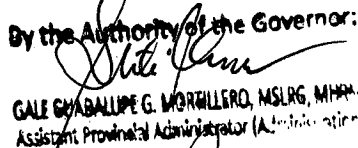 By the Authority of the Governor:
GALE GUADALUPE G. MORTILLERO, MSLRG, MHRM
Assistant Provincial Administrator (Administration